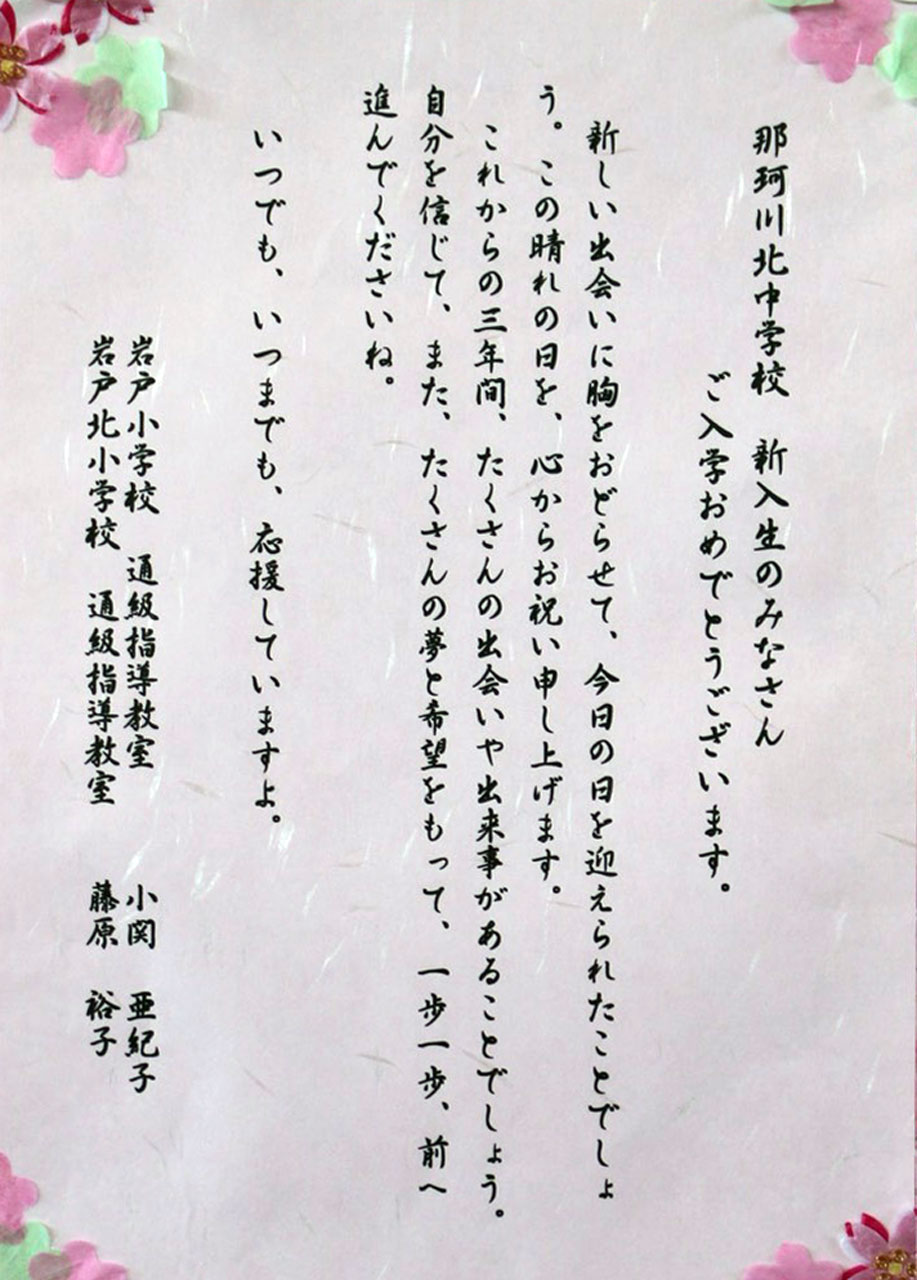 那珂川北中学校　新入生のみなさん
ご入学おめでとうございます。
新しい出会いに胸をおどらせて、今日の日を迎えられたことでしょ
う。この晴れの日を、心からお祝い申し上げます。
これからの三年間、たくさんの出会いや出来事があることでしょう。
自分を信じて、また、たくさんの夢と希望をもって、一歩一歩、前へ
進んでくださいね。
いつでも、いつまでも、応援していますよ。
岩戸小学校　通級指導教室　小関　亜紀子
岩戸北小学校　通級指導教室　藤原　裕子